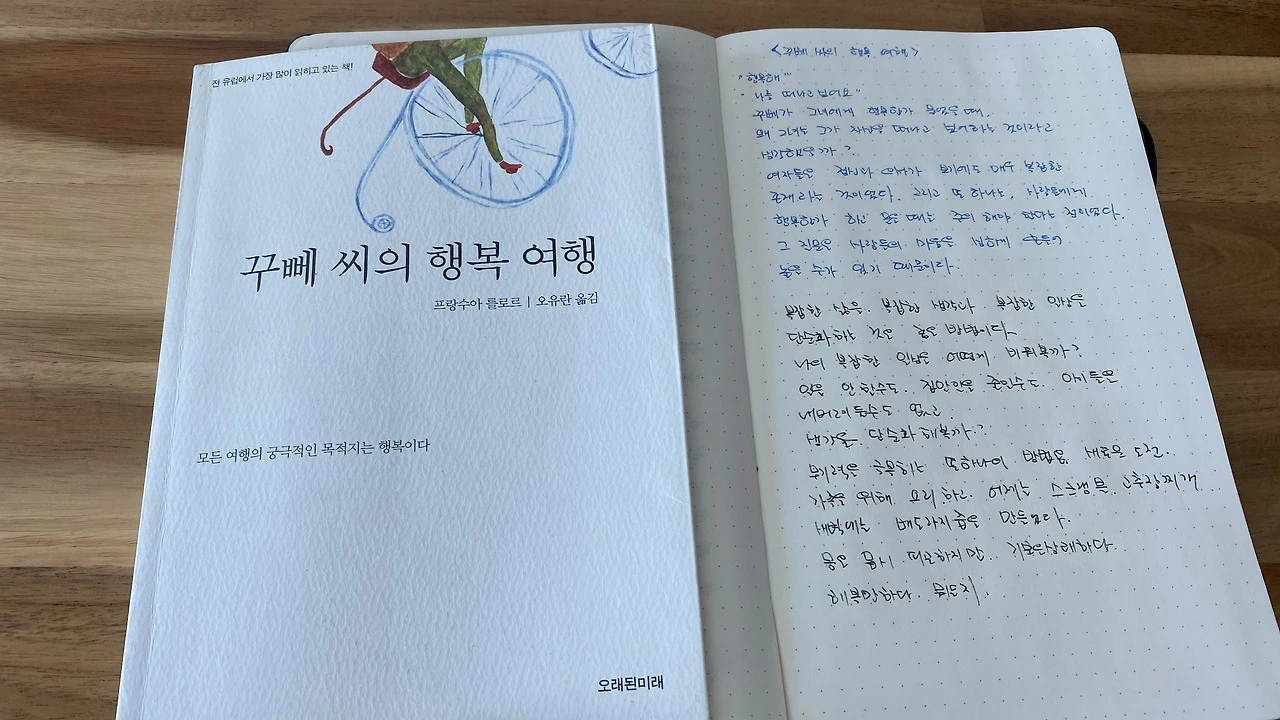 전 유럽에서 가장 많이 읽히고 있는 책!
꾸뻬 씨의 행복 여행
프랑수아 를로르 | 오유란 옮김
모든 여행의 궁극적인 목적지는 행복이다
오래된미래
<꾸뻬 씨의 행복 여행>
"행복해"
나를 떠나고 보아요"
꾸뻬가 그녀에게 행복한가 물었을 때,
왜 그녀는 그가 자신을 떠나고 보려하는 것이라고
생각했을까?
여자들은 정신과 의사가 보기에도 매우 복잡한
존재라는 것이었다. 그리고 또 하나는, 사람들에게
행복한가 하고 물을 때는 주의해야 한다는 점이었다.
그 질문은 사람들의 마음을 심하게 흔들어
놓을 수가 있기 때문이다.
복잡한 삶은. 복잡한 생각과 복잡한 일상은
단순화하는 것은 좋은 방법이다.
나의 복잡한 일상은 어떻게 비워볼까?
일은 안 할수도. 집안일은 줄일수도. 아이들은
내버려둘수도 없고.
생각을 단순화해볼까?
무력을 극복하는 또하나의 방법은, 새로운 도전.
가족을 위해 요리하고. 어제는 고추장찌개
새벽에는 배도라지즙을 만든다.
몸은 몹시 피곤하지만. 기분은 상쾌하다.
해볼만하다. 뭐든지.